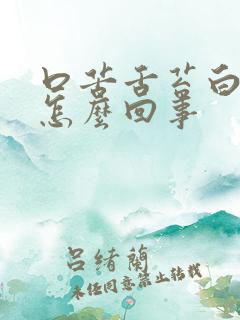 口苦舌苔白
怎麼回事
呂緒蘭
未经同意禁止转载